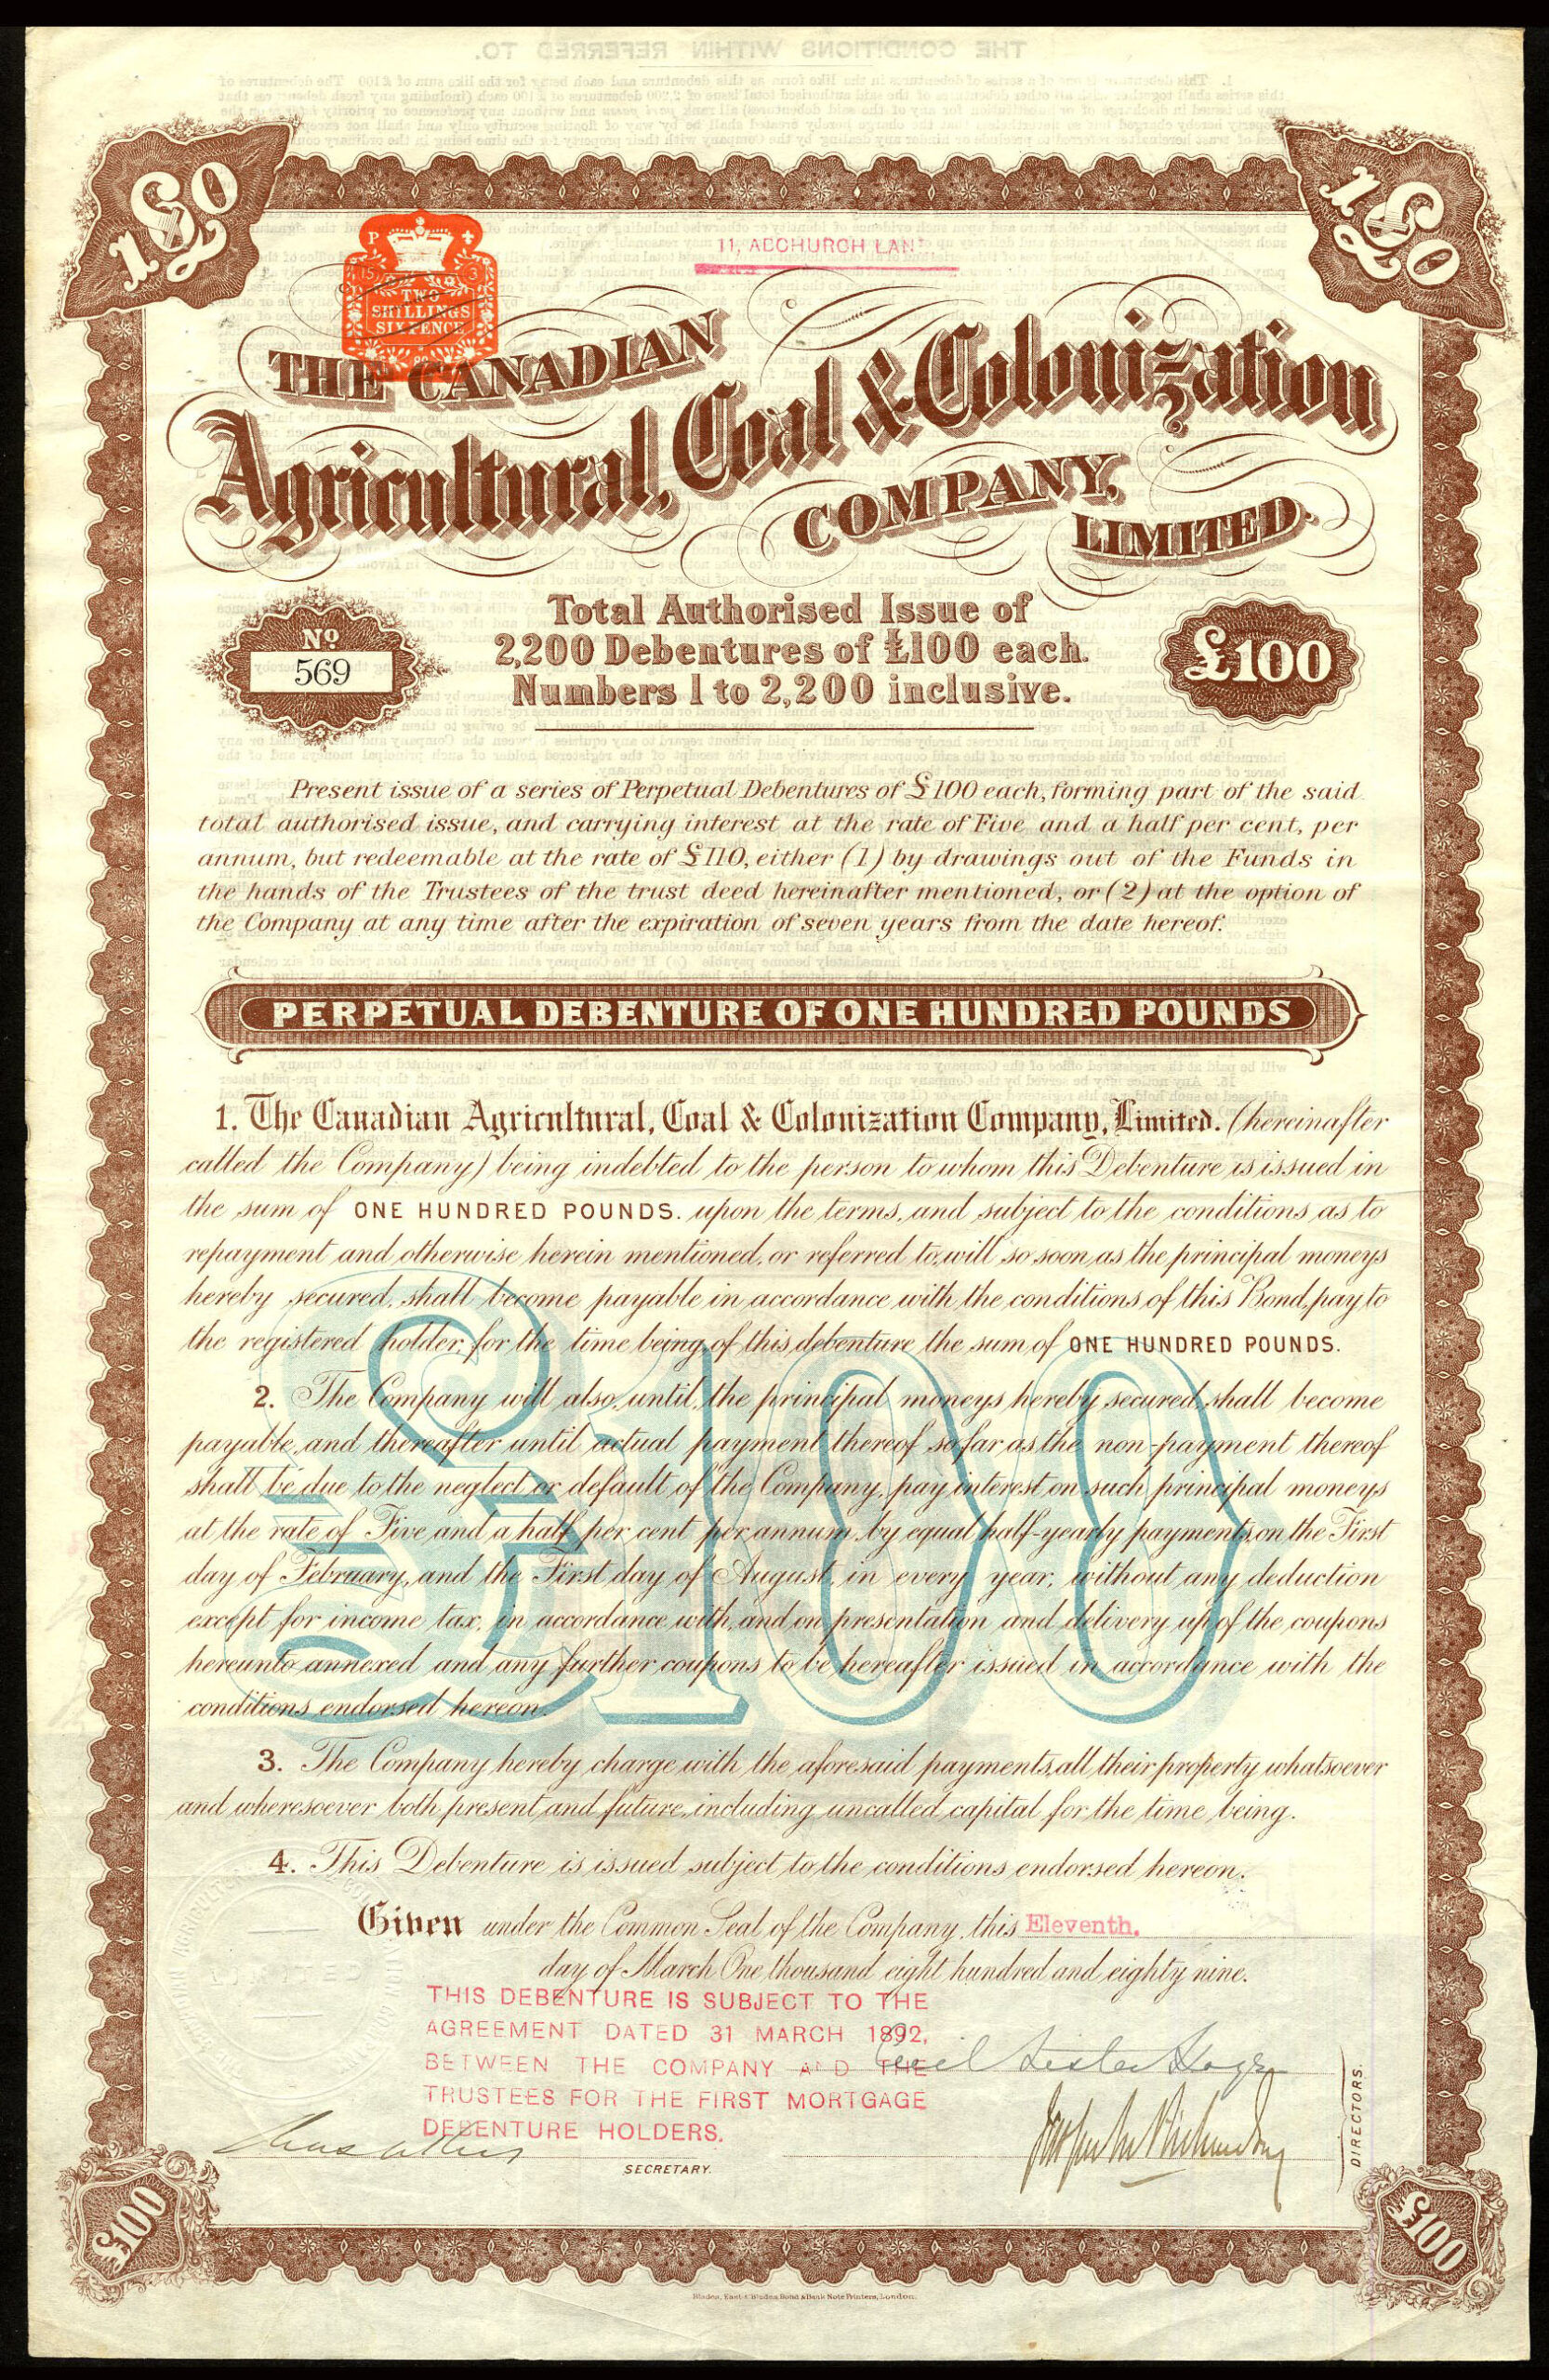 11, ABCHURCH LANE
£100
£100
P
15 3
TWO
SHILLINGS
SIX PENCE
THE CANADIAN
Agricultural, Coal & Colonization
COMPANY,
LIMITED.
Total Authorised Issue of
2,200 Debentures of £100 each.
Numbers 1 to 2,200 inclusive.
No
569
£100
Present issue of a series of Perpetual Debentures of £100 each, forming part of the said
total authorised issue, and carrying interest at the rate of Five and a half per cent, per
annum, but redeemable at the rate of £110, either (1) by drawings out of the Funds in
the hands of the Trustees of the trust deed hereinafter mentioned, or (2) at the option of
the Company at any time after the expiration of seven years from the date hereof.
PERPETUAL DEBENTURE OF ONE HUNDRED POUNDS
1. The Canadian Agricultural, Coal & Colonization Company, Limited. (hereinafter
called the Company) being indebted to the person to whom this Debenture is issued in
the sum of ONE HUNDRED POUNDS. upon the terms, and subject to the conditions as to
repayment and otherwise herein mentioned, or referred to, will so soon as the principal moneys
hereby secured, shall become payable in accordance with the conditions of this Bond, pay to
the registered holder, for the time being, of this debenture the sum of ONE HUNDRED POUNDS.
2. The Company will also, until, the principal moneys hereby secured, shall become
payable, and thereafter until actual payment thereof so far as the non-payment thereof
shall be due to the neglect or default of the Company, pay interest on such principal moneys
at the rate of Five and a half per cent per annum, by equal half-yearly payments, on the First
day of February, and the First day of August, in every year, without any deduction
except for income tax, in accordance with, and on presentation and delivery up of the coupons
hereunto annexed and any further coupons to be hereafter issued in accordance with the
conditions endorsed hereon.
£100
3. The Company hereby charge with the aforesaid payments, all their property whatsoever
and wheresoever both present and future, including uncalled capital for the time being.
4. This Debenture is issued subject to the conditions endorsed hereon.
Given under the Common Seal of the Company, this Eleventh.
day of March One thousand eight hundred and eighty nine.
THIS DEBENTURE IS SUBJECT TO THE
AGREEMENT DATED 31 MARCH 1892,
BETWEEN THE COMPANY AND THE
TRUSTEES FOR THE FIRST MORTGAGE
DEBENTURE HOLDERS.
Cecil Lister Kaye
SECRETARY.
DIRECTORS.
£100
£100
Blades, East & Blades, Bond & Bank Note Printers, London.